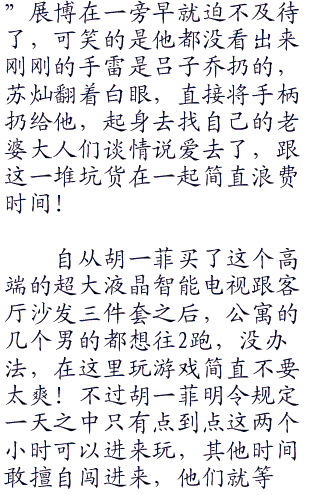 ”展博在一旁早就迫不及待
了，可笑的是他都没看出来
刚刚的手雷是吕子乔扔的，
苏灿翻着白眼，直接将手柄
扔给他，起身去找自己的老
婆大人们谈情说爱去了，跟
这一堆坑货在一起简直浪费
时间！
自从胡一菲买了这个高
端的超大液晶智能电视跟客
厅沙发三件套之后，公寓的
几个男的都想往2跑，没办
法，在这里玩游戏简直不要
太爽！不过胡一菲明令规定
一天之中只有点到点这两个
小时可以进来玩，其他时间
敢擅自闯进来，他们就等